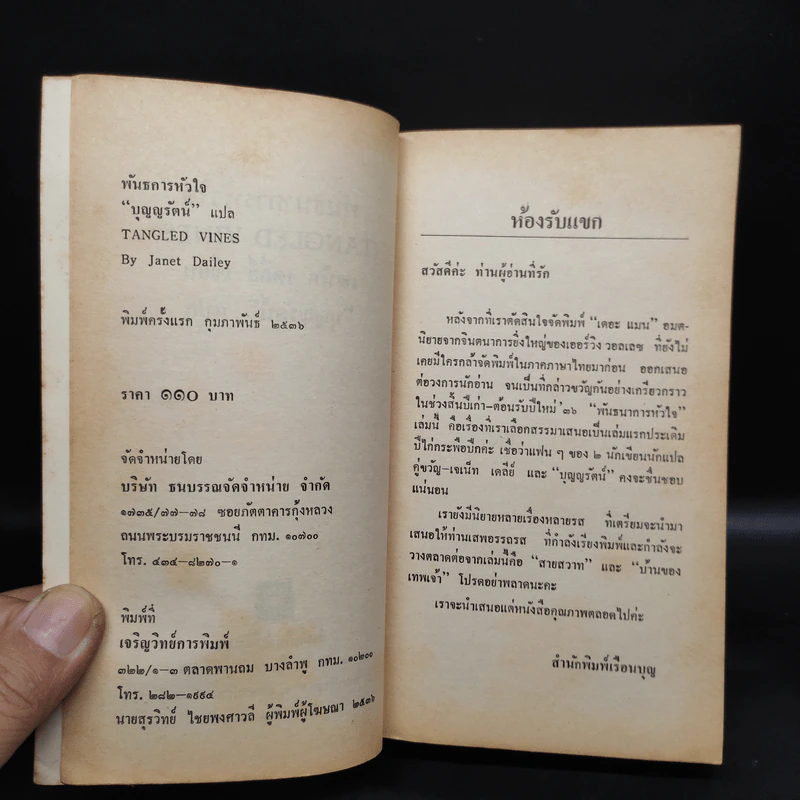 พันธการหัวใจ
“บุญญรัตน์” แปล
TANGLED VINES
By Janet Dailey
พิมพ์ครั้งแรก กุมภาพันธ์ ๒๕๓๖
ราคา ๑๑๐ บาท
จัดจำหน่ายโดย
บริษัท ธนบรรณจัดจำหน่าย จำกัด
๑๗๓๕/๗๗-๗๘ ซอยภัตตาคารกุ้งหลวง
ถนนพระบรมราชชนนี กทม. ๑๐๗๐๐
โทร. ๔๓๔-๘๒๗๐-๑
พิมพ์ที่
เจริญวิทย์การพิมพ์
๓๒๒/๑-๓ ตลาดพานถม บางลำพู กทม. ๑๐๒๐๐
โทร. ๒๘๒-๑๙๙๔
นายสุรวิทย์ ไชยพงศาวลี ผู้พิมพ์ผู้โฆษณา ๒๕๓๖
ห้องรับแขก
สวัสดีค่ะ ท่านผู้อ่านที่รัก
หลังจากที่เราตัดสินใจจัดพิมพ์ “เดอะ แมน” อมต-
นิยายจากจินตนาการยิ่งใหญ่ของเออร์วิง วอลเลซ ที่ยังไม่
เคยมีใครกล้าจัดพิมพ์ในภาคภาษาไทยมาก่อน ออกเสนอ
ต่อวงการนักอ่าน จนเป็นที่กล่าวขวัญกันอย่างเกรียวกราว
ในช่วงสิ้นปีเก่า-ต้อนรับปีใหม่ ’๓๖ “พันธนาการหัวใจ”
เล่มนี้ คือเรื่องที่เราเลือกสรรมาเสนอเป็นเล่มแรกประเดิม
ปีไก่กระพือปีกค่ะ เชื่อว่าแฟน ๆ ของ ๒ นักเขียนนักแปล
คู่ขวัญ-เจเน็ท เดลีย์ และ “บุญญรัตน์” คงจะชื่นชอบ
แน่นอน
เรายังมีนิยายหลายเรื่องหลายรส ที่เตรียมจะนำมา
เสนอให้ท่านเสพอรรถรส ที่กำลังเรียงพิมพ์และกำลังจะ
วางตลาดต่อจากเล่มนี้คือ “สายสวาท” และ “บ้านของ
เทพเจ้า” โปรดอย่าพลาดนะคะ
เราจะนำเสนอแต่หนังสือคุณภาพตลอดไปค่ะ
สำนักพิมพ์เรือนบุญ